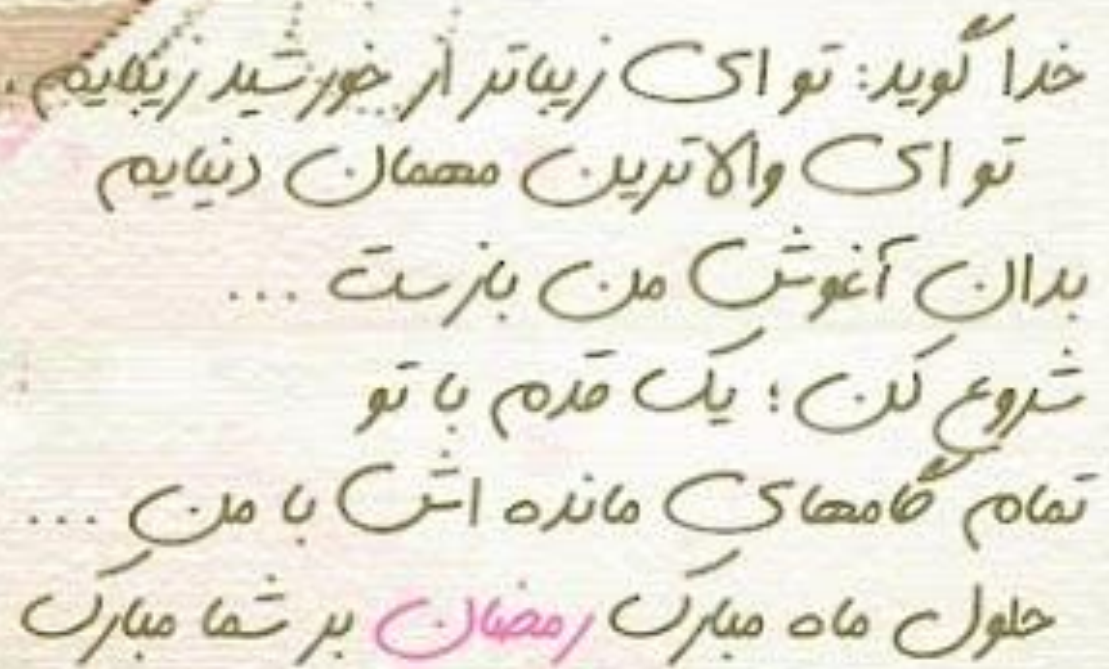 خدا گوید: تو ای زیباتر از خورشید زیبایم،
تو ای والاترین مهمان دنیایم
بدان آغوش من بازست ...
شروع کن؛ یک قدم با تو
تمام گامهای مانده اش با من ...
حلول ماه مبارک رمضان بر شما مبارک